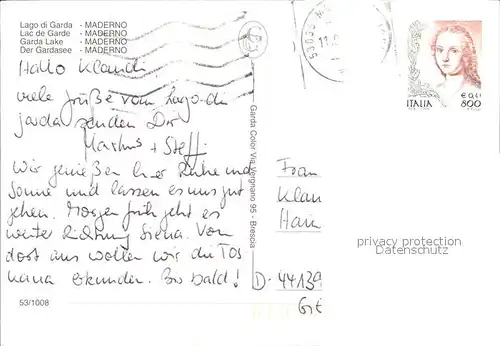 Lago di Garda - MADERNO
Lac de Garde - MADERNO
Garda Lake - MADERNO
Der Gardasee - MADERNO
Hallo Klaudi,
viele Grüße vom Lago di
Garda senden Dir
Markus + Steffi
Wir genießen hier Ruhe und
Sonne und lassen es uns gut
gehen. Morgen früh geht es
weiter Richtung Siena. Von
dort aus wollen wir die Tos
kana erkunden. Bis bald!
53/1008
Garda Color Via Vergnano 95 - Brescia
ITALIA
€ 0,41
800
Frau
Klau
Hain
D-44139
privacy protection
Datenschutz